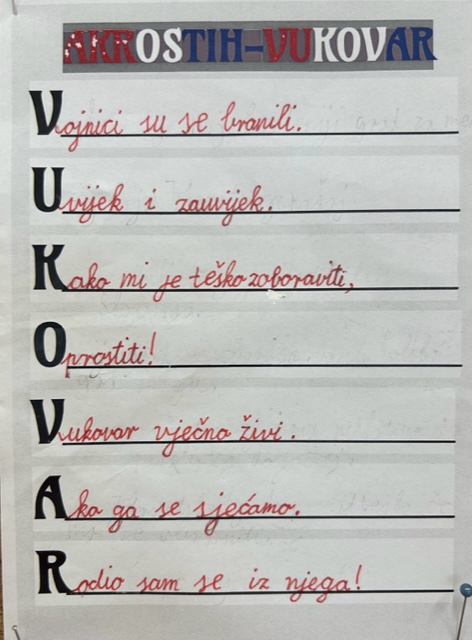 AKROSTIH-VUKOVAR
Vojnici su se branili.
Uvijek i zauvijek.
Kako mi je teško zoboraviti,
Oprostiti!
Vukovar vječno živi.
Ako ga se sjećamo.
Rodio sam se iz njega!